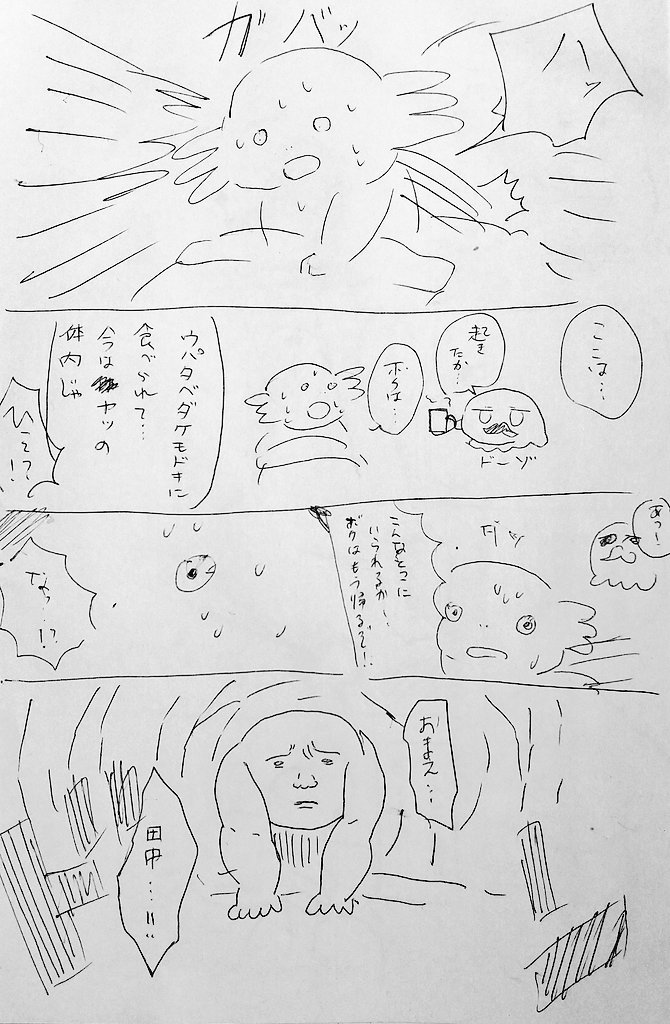 ガバッ
ハッ
ここは…
起き
たか…
ドーゾ
ボクは…
ウパタベダケモドキに
食べられて…
今は
ヤツの
体内じゃ
ひえ!?
あっ!
ダッ
こんなとこに
いられるか!
ボクはもう帰るぞ!
なっ…!?
おまえ…
田中…!!